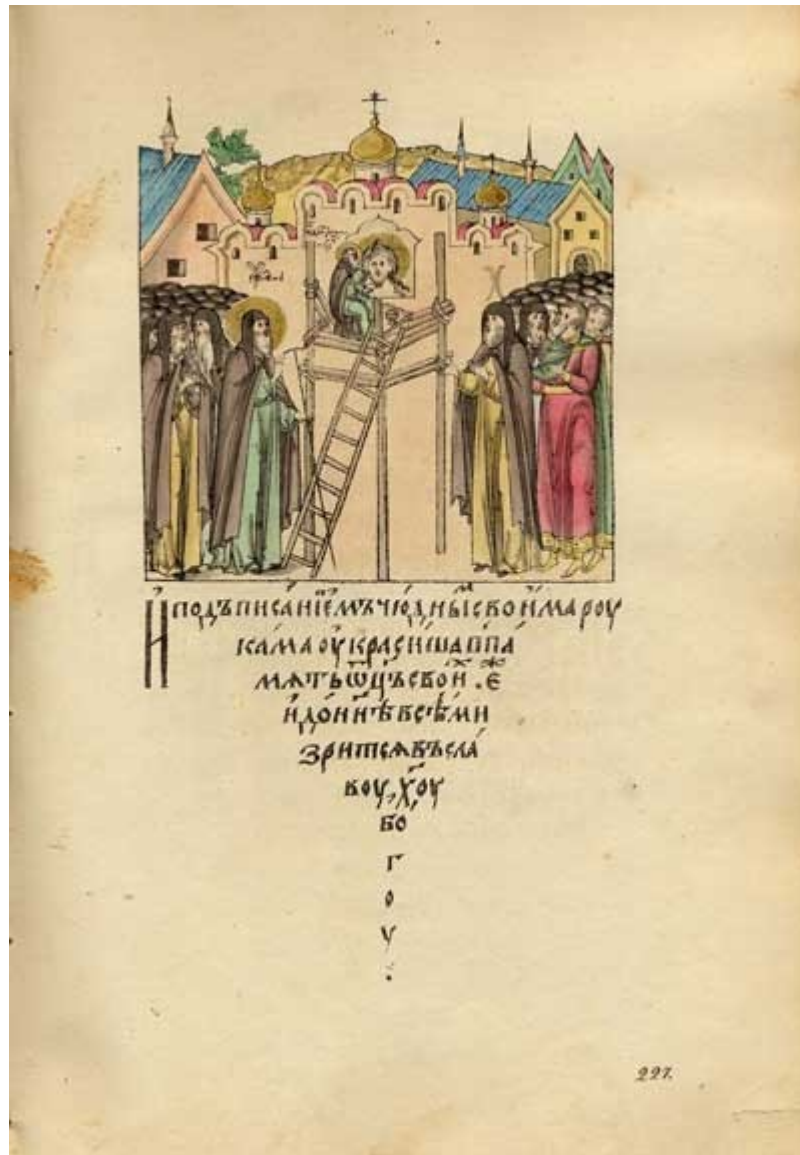 И подъписа́нїемъ чю́дныⷨ свои́ма роу
ка́ма оу҆краси́ша в па́
мѧть ѿц҃ъ свои́ⷯ. еⷤ
и҆ до нн҃ѣ всѣ́ми
зритсѧ въ сла́
воу, хⷭ҇оу
бо́
г
о
у
:
227.